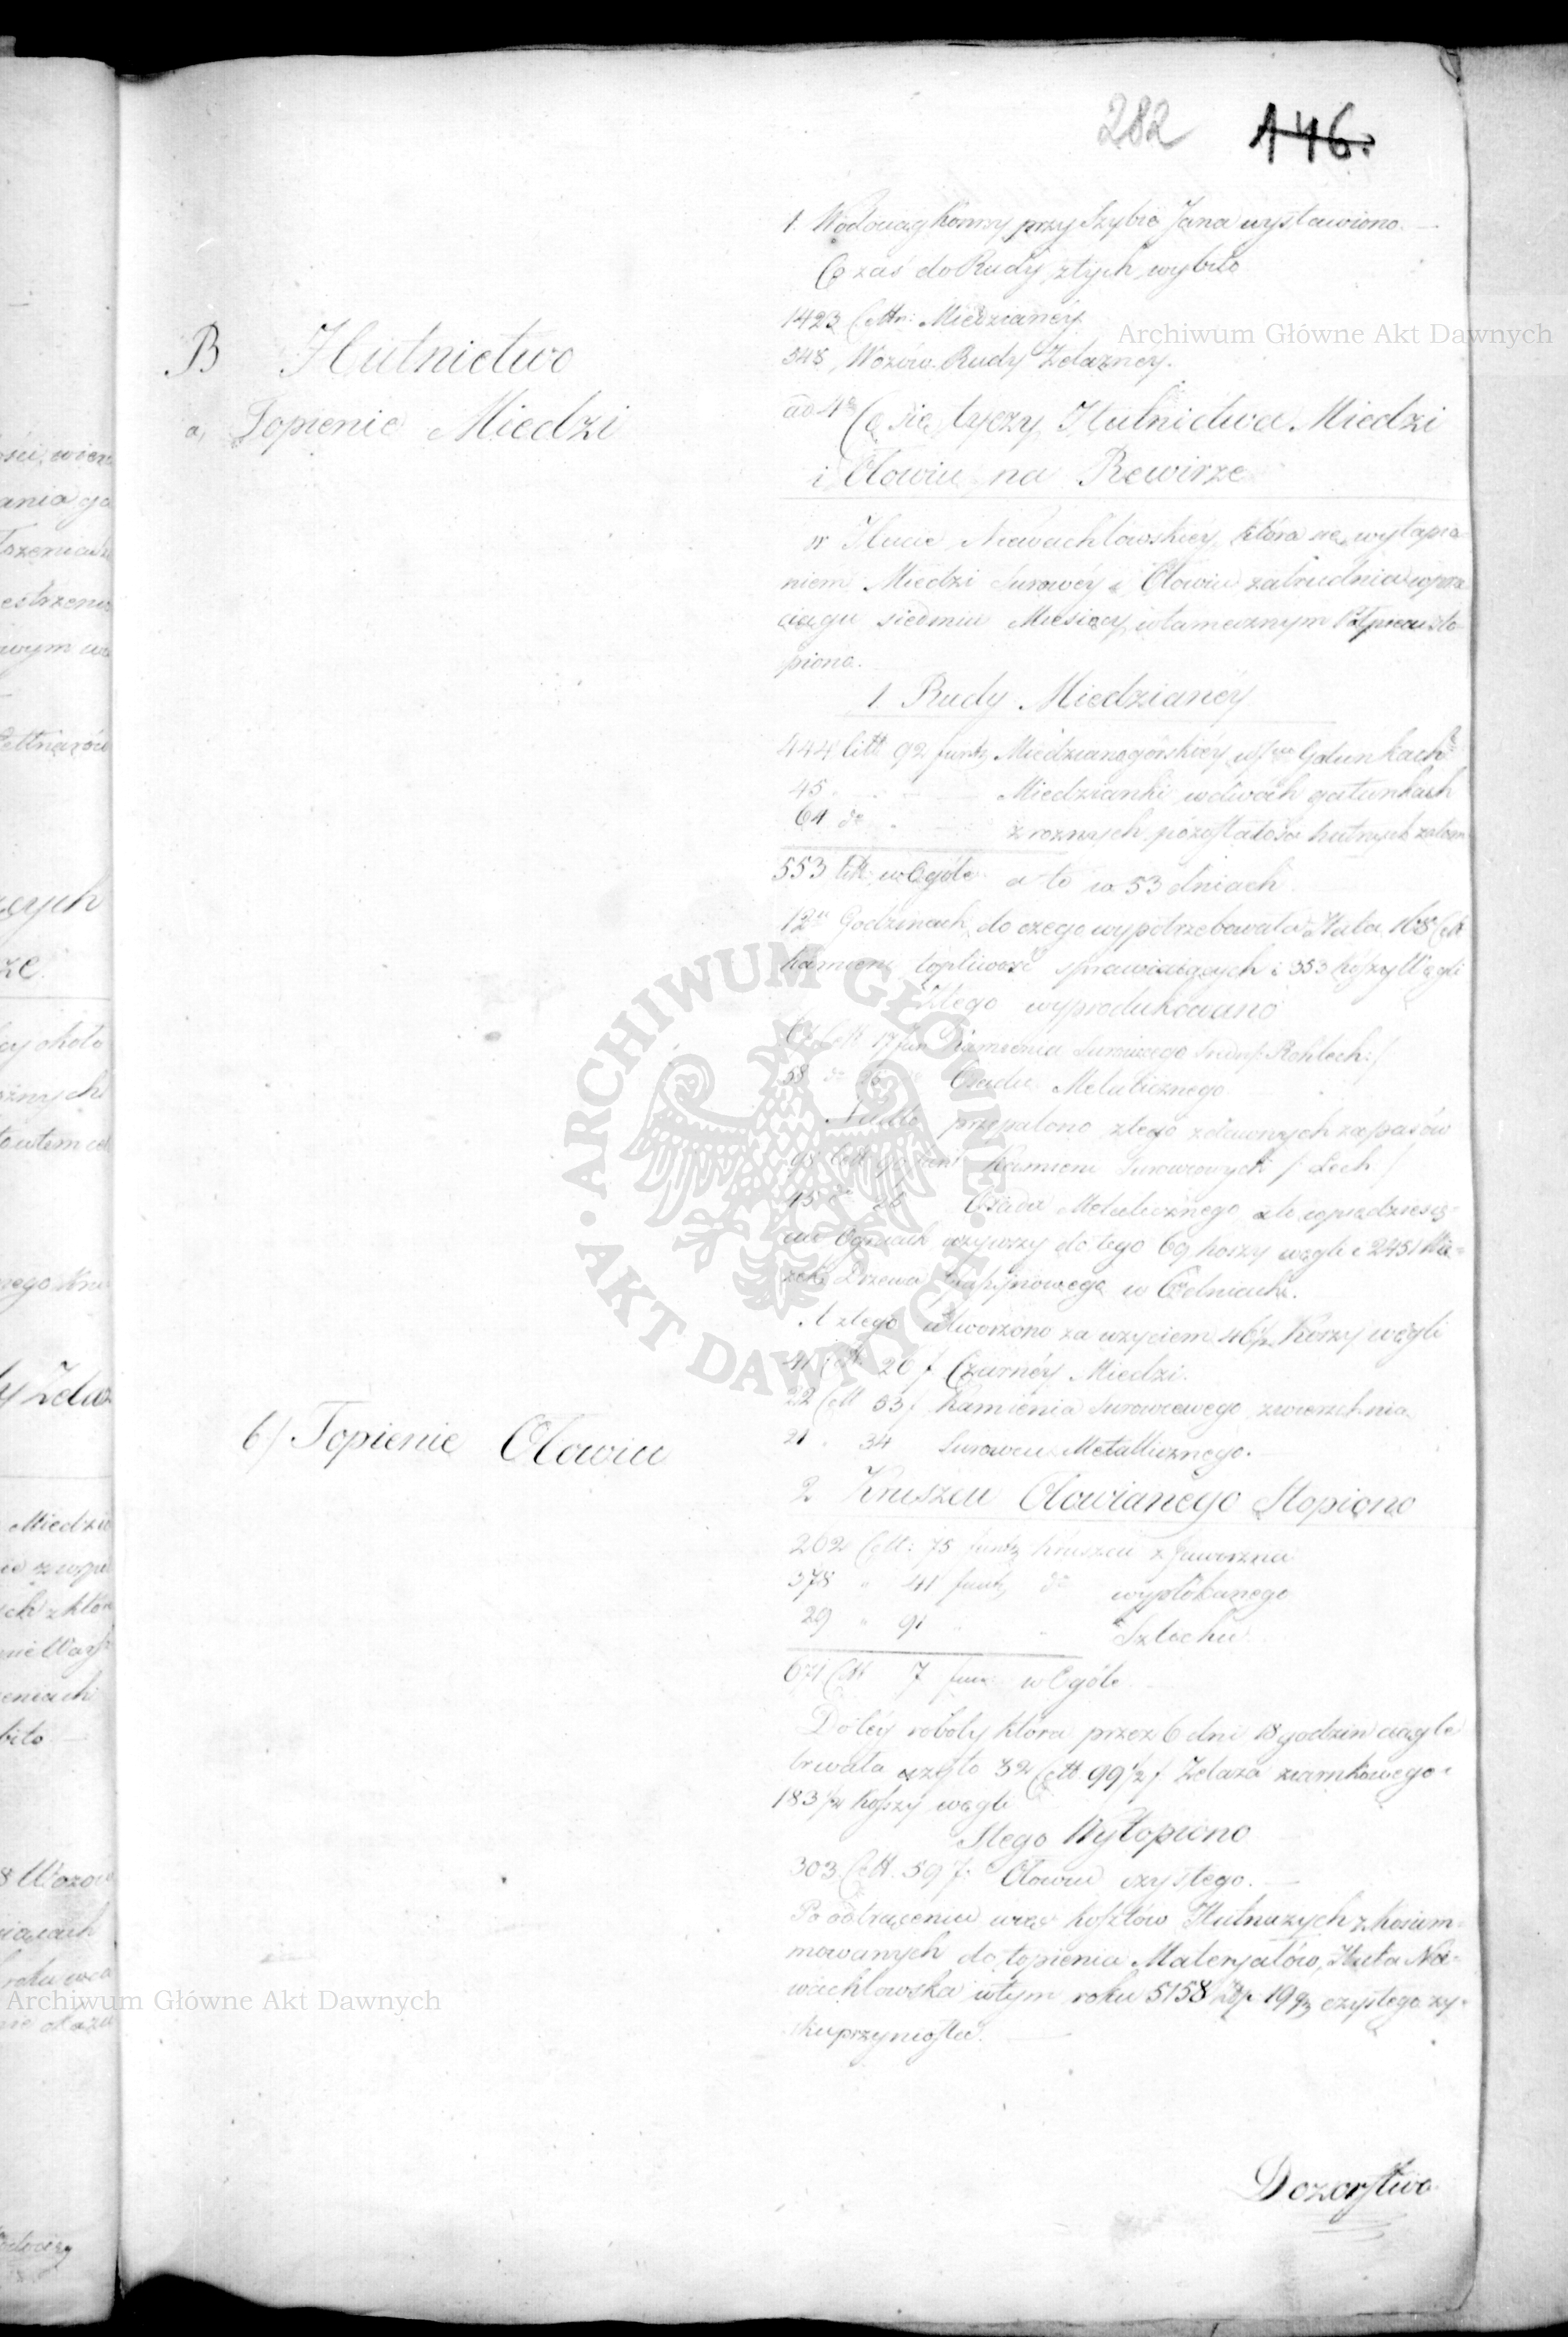 282 146.
1. Wodociąg konny przy Szybie Jana wystawiono. —
Co zaś do Rudy, z tych wybito
1423 Cettn: Miedzianéy
348, Wozów Rudy Żelazney.
B Hutnictwo
a, Topienie Miedzi
ad 4 Co się tyczy Hutnictwa Miedzi
i Ołowiu na Rewirze
w Hucie Niewachlowskiéy, która się wytapia-
niem Miedzi Surowéy i Ołowiu zatrudnia w prze
ciągu siedmiu Miesięcy w tamecznym sto-
piono.
1 Rudy Miedzianéy
444 Cett 92 funt, Miedzianogórskiéy w Gatunkach
45 — Miedzianki w dwóch gatunkach
64 do z roznych pozostałości hutnych
553 Cett w Ogóle a to w 53 dniach
12 Godzinach, do czego wypotrzebowała Huta 168 Cett
kamieni topliwość sprawiaiących i 353 koszy Węgli
Z tego wyprodukowano
Cett 17 fun Kamienia Surowego Rohlech:/
58 do 36 Osadu Metalicznego
Nadto przepalono z tego z dawnych zapasów
98 Cett funt Kamieni Surowcowych /: Lech :/
45 do 26 Osadu Metalicznego a to w piędziesią-
ciu Ogniach użiwszy do tego 69 koszy węgli i 2451 Wią-
zek Drzewa w dniach.
A z tego utworzono za użyciem 46 Koszy węgli
41 Cett 26 f Czarnéy Miedzi.
22 Cett 53 f Kamienia Surowcowego zwierzchnia
21 . 34 Surowcu Metallicznego.
b/ Topienie Ołowiu
2 Kruszcu Ołowianego Stopiono
262 Cett: 75 funt, Kruszcu z Jaworzna
378 " 41 funt, do wypłókanego
29 " 91 " " Szlochu
671 Cett 7 fun: w Ogóle
Do téy roboty która przez 6 dni 18 godzin ciągle
trwała użyto 32 Cett 99 1/2 f Żelaza ziarnkowego i
183 1/4 Koszy węgli
Z tego Wytopiono
303 Cett. 59 f. Ołowiu czystego. —
Po odtrąceniu więc kosztów Hutniczych z konsum-
mowanych do topienia Materyałów, Huta Nie-
wachlowska w tym roku 5158 Złp 19 gr czystego zy-
sku przyniosła. —
Dozorstwo
Archiwum Główne Akt Dawnych
ARCHIWUM GŁÓWNE · AKT DAWNYCH ·
Archiwum Główne Akt Dawnych